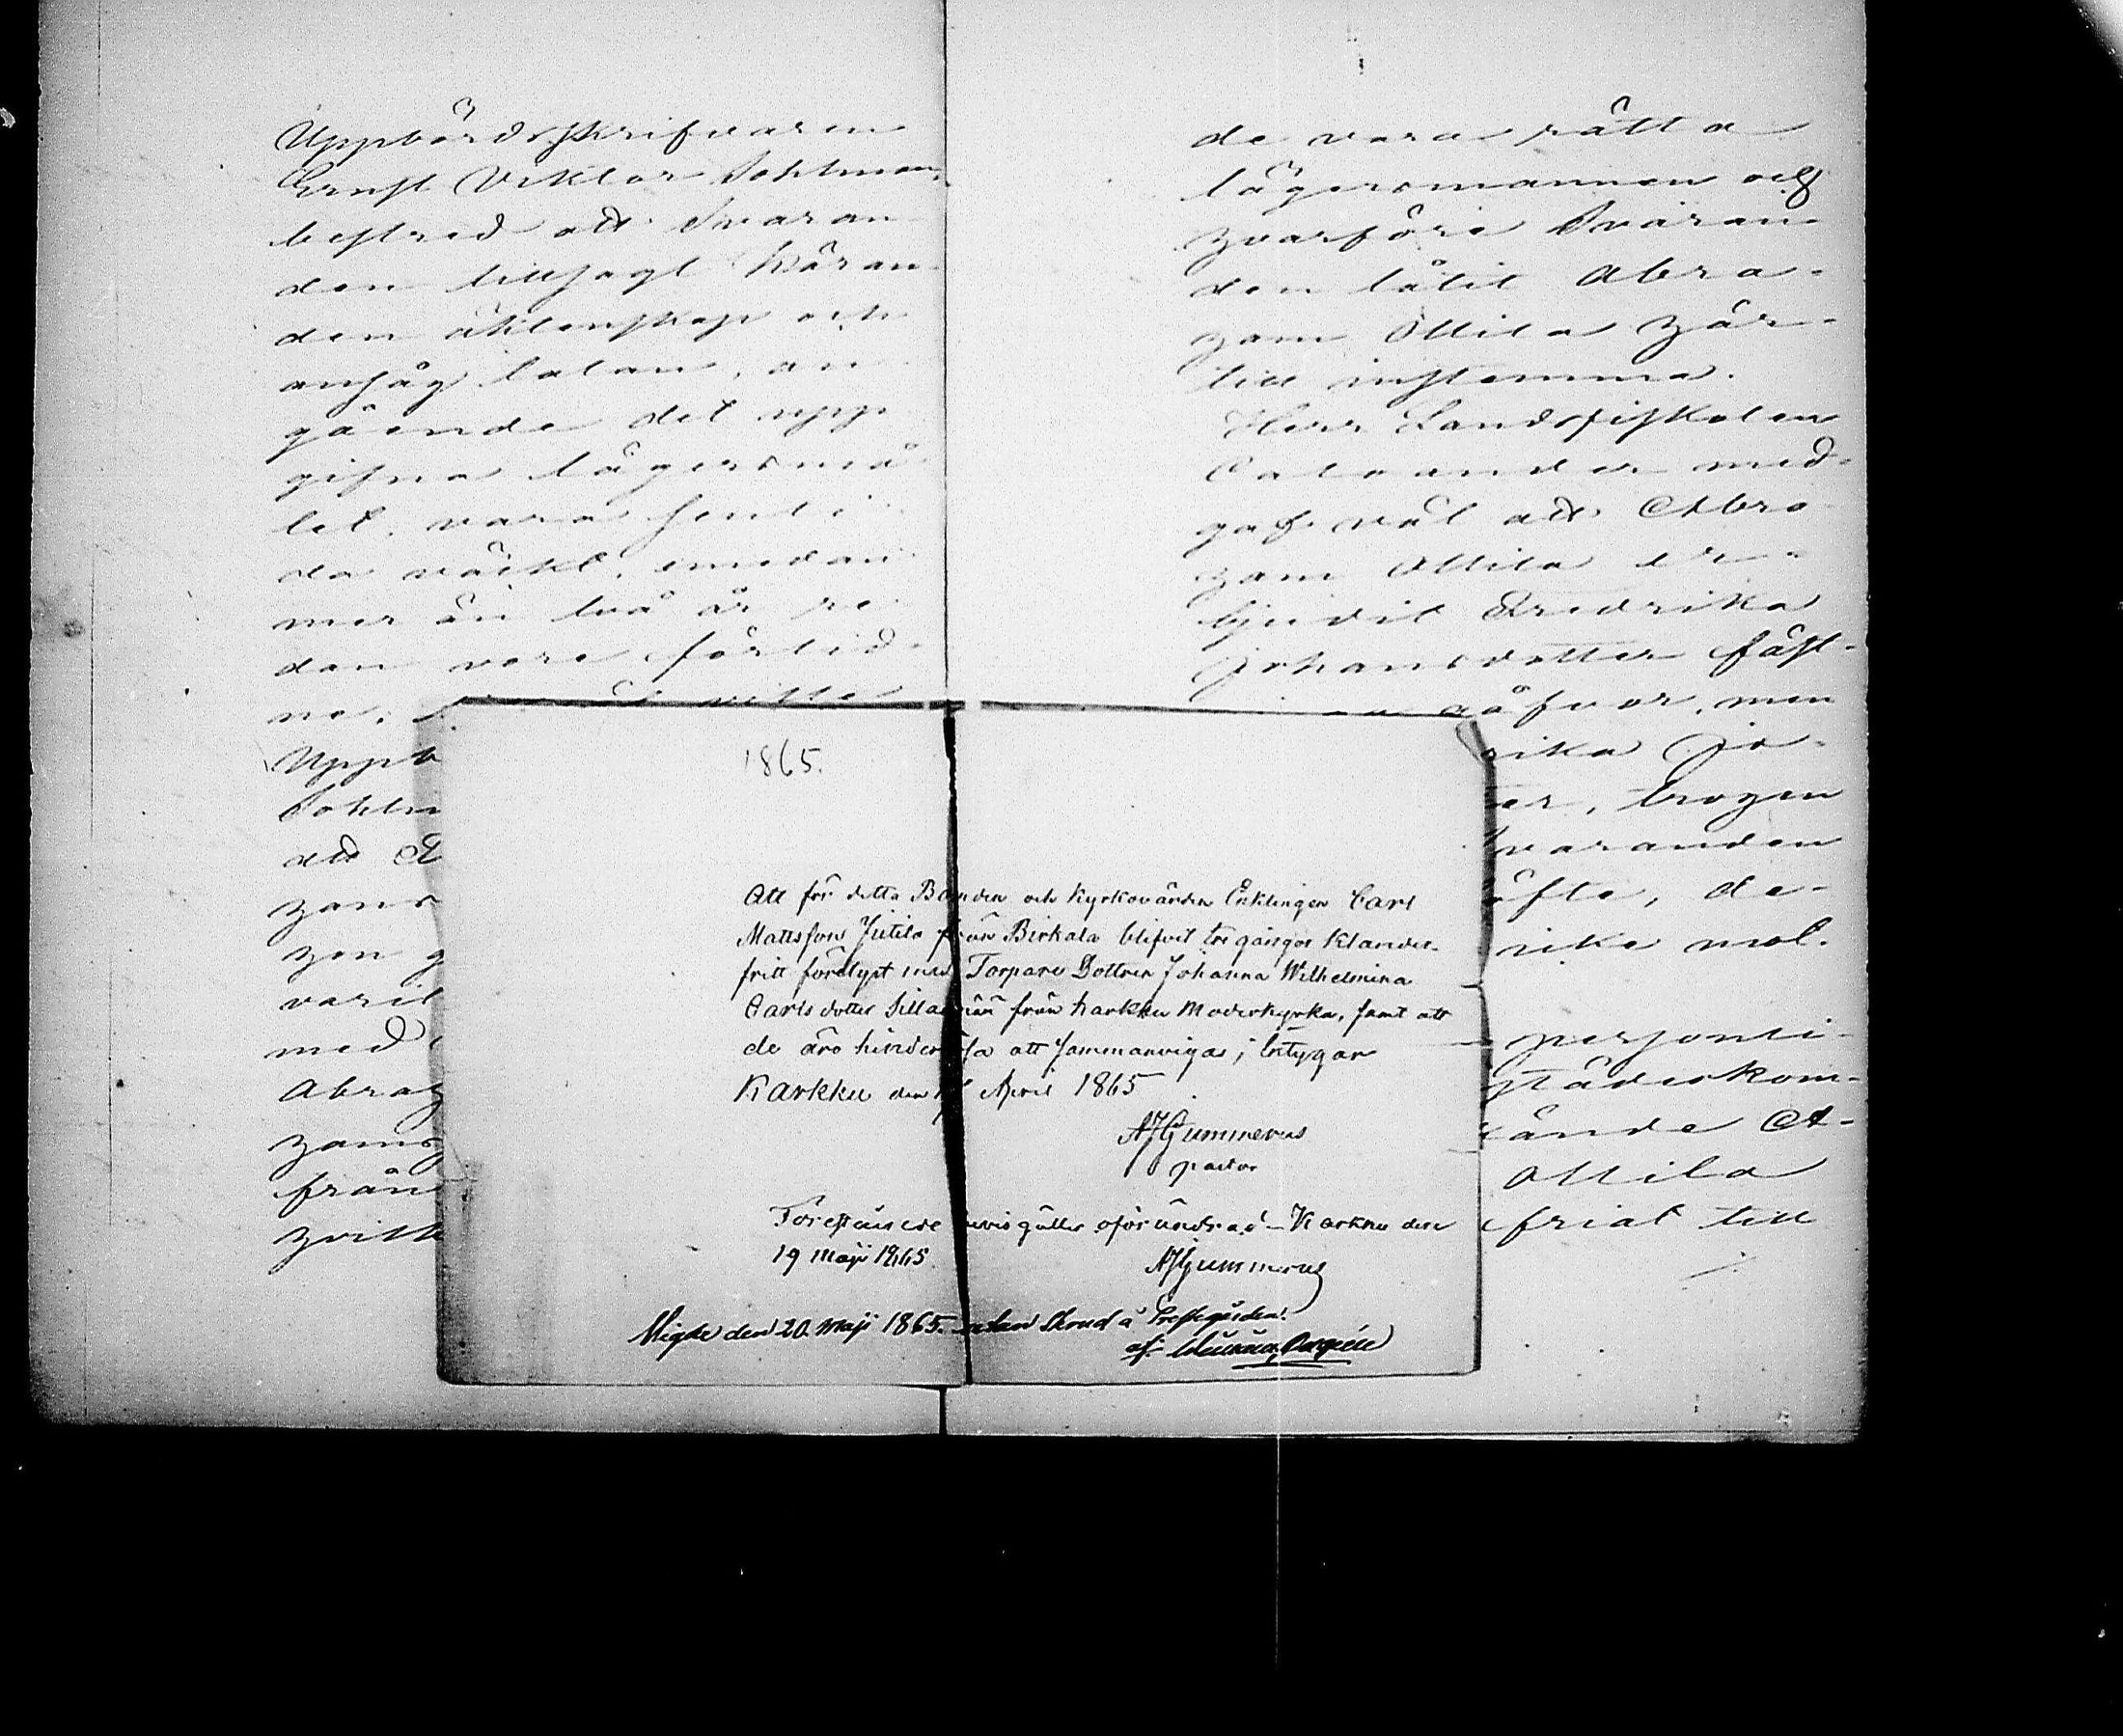 Uppbördsskrifvaren
Ernst Viktor Sohlman
bestred att Svaran
den tillsagt Käran
den äktenskap och
ansåg talan, an
gående det upp
gifna lägersmå
let, vara
da väckt, emedan
mer än två år re
dan vore förlid-
na,
Uppb
Sohlm
att
zam
zon g
varit
med
Abraz
zams
från
zvitt
de vara rätta
lägersmannen och
zvarföre Svaran
den låtit Abra-
zam Ollila zär-
till instemma.
Herr Landsfiskalen
Calander med-
gaf väl att Abra
zam Ollila er-
bjudit Fredrika
Johansdotter fäst-
gåfvor, men
rika Jo-
er, trozon
varanden
öfte, de-
rike mot.
personli-
städeskom-
ände A-
Ollila
friat till
1865.
Att för detta Bonden och Kyrkovärden Enklingen Carl
Mattsson Jutila från Birkala blifvit tre gångor klander-
fritt förelyst med Torpare Dottren Johanna Wilhelmina
Carlsdotter från Karkku Moderkyrka, samt att
de äro hinderslösa att sammanvigas; intygar
Karkku den April 1865
AJGummerus
pastor
Förestående bevis gäller oförändrad – Karkku den
19 Maji 1865.
AJGummerus
Vigde den 20. Maji 1865. utan Skrud å Prestgården.
af